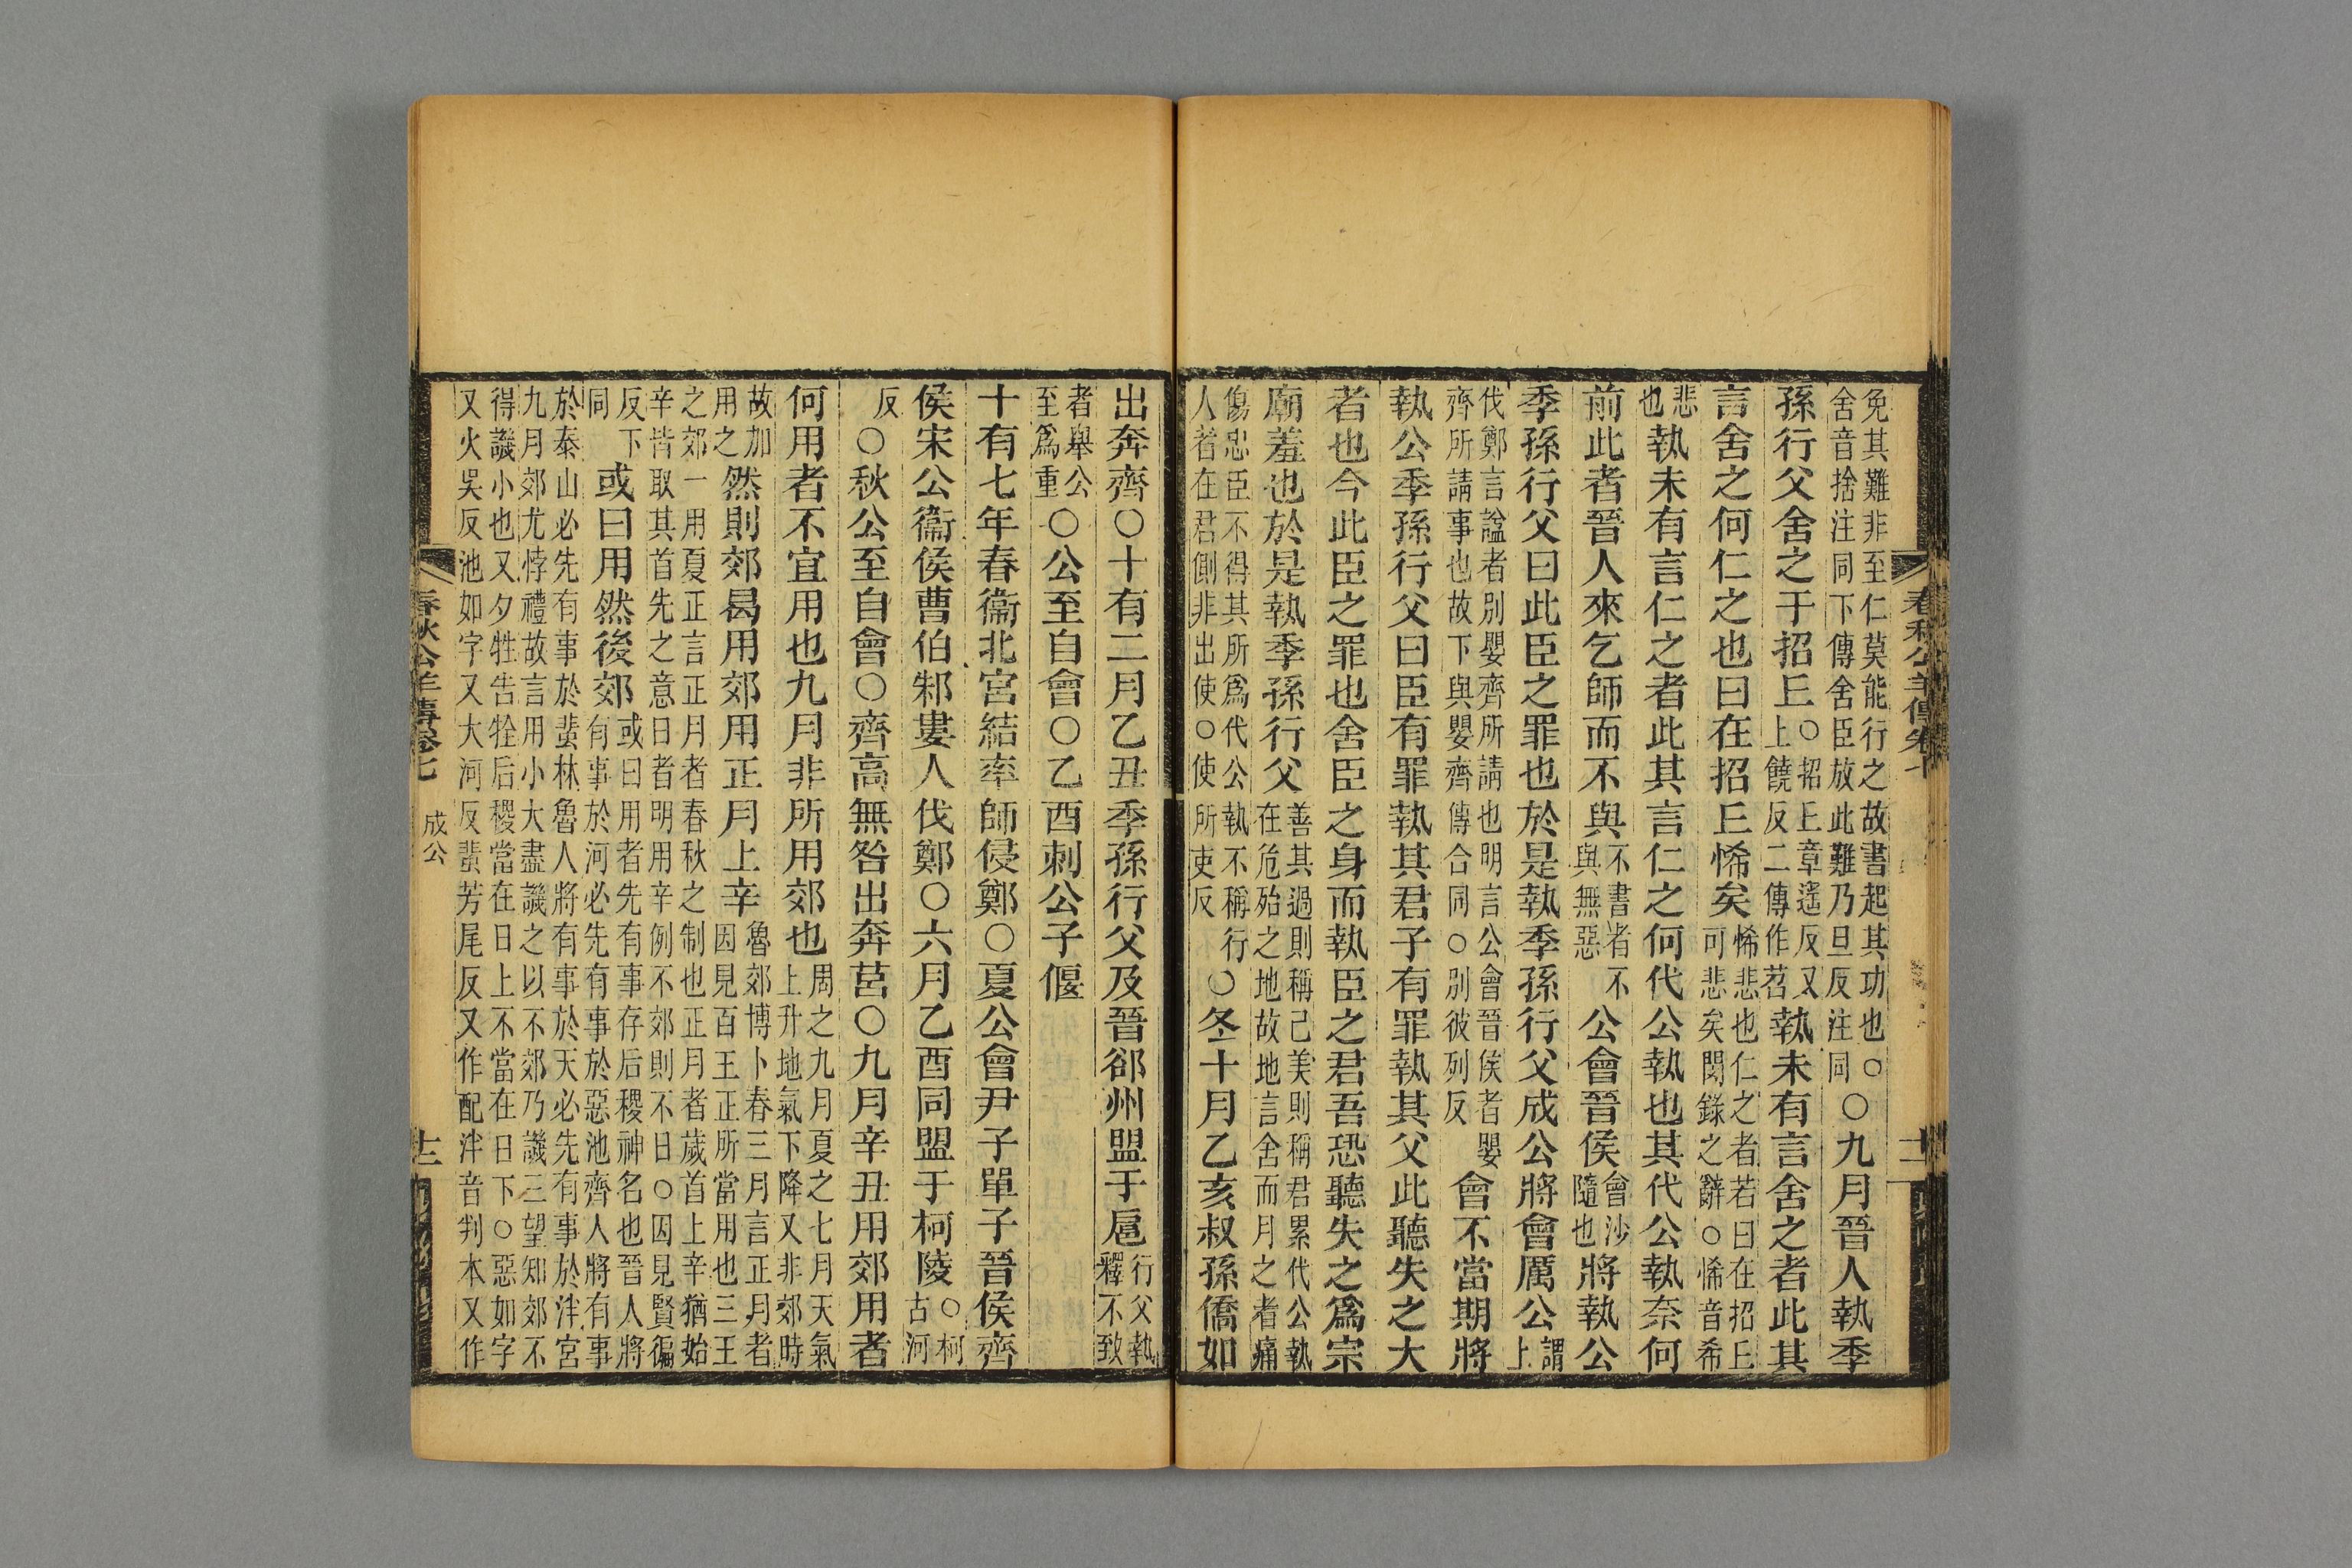 免其難非至仁莫能行之故書起其功也〇
舍音捨注同下傳舍臣放此難乃旦反注同
〇九月晉人執季
孫行父舍之于招丘
〇招丘章遙反又
上饒反二傳作苕
執未有言舍之者此其
言舍之何仁之也曰在招丘悕矣
悕悲也仁之者若曰在招丘
可悲矣閔錄之辭〇悕音希
悲
也
執未有言仁之者此其言仁之何代公執也其代公執奈何
前此者晉人來乞師而不與
不書者不
與無惡
公會晉侯
會沙
隨也
將執公
季孫行父曰此臣之罪也於是執季孫行父成公將會厲公
謂
上
伐鄭言諡者別嬰齊所請也明言公會晉侯者嬰
齊所請事也故下與嬰齊傳合同〇別彼列反
會不當期將
執公季孫行父曰臣有罪執其君子有罪執其父此聽失之大
者也今此臣之罪也舍臣之身而執臣之君吾恐聽失之爲宗
廟羞也於是執季孫行父
善其過則稱己美則稱君累代公執
在危殆之地故地言舍而月之者痛
傷忠臣不得其所爲代公執不稱行
人者在君側非出使〇使所吏反
〇冬十月乙亥叔孫僑如
出奔齊〇十有二月乙丑季孫行父及晉郤州盟于扈
行父執
釋不致
者舉公
至爲重
〇公至自會〇乙酉刺公子偃
十有七年春衞北宮結率師侵鄭〇夏公會尹子單子晉侯齊
侯宋公衞侯曹伯邾婁人伐鄭〇六月乙酉同盟于柯陵
〇柯
古河
反
〇秋公至自會〇齊高無咎出奔莒〇九月辛丑用郊用者
何用者不宜用也九月非所用郊也
周之九月夏之七月天氣
上升地氣下降又非郊時
故加
用之
然則郊曷用郊用正月上辛
魯郊博卜春三月言正月者
因見百王正所當用也三王
之郊一用夏正言正月者春秋之制也正月者歲首上辛猶始
辛皆取其首先之意日者明用辛例不郊則不日〇因見賢徧
反下
同
或曰用然後郊
或曰用者先有事存后稷神名也晉人將
有事於河必先有事於惡池齊人將有事
於泰山必先有事於蜚林魯人將有事於天必先有事於泮宮
九月郊尤悖禮故言用小大盡譏之以不郊乃譏三望知郊不
得譏小也又夕牲告牷后稷當在日上不當在日下〇惡如字
又火吳反池如字又大河反蜚芳尾反又作配泮音判本又作
春秋公羊傳卷七
成公